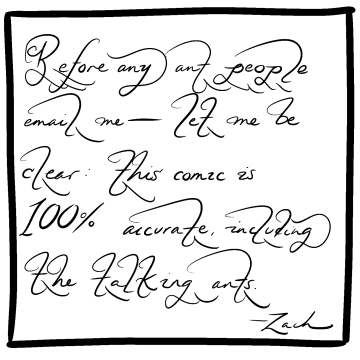 Before any ant people
email me— let me be
clear: this comic is
100% accurate, including
the talking ants.
—Zach